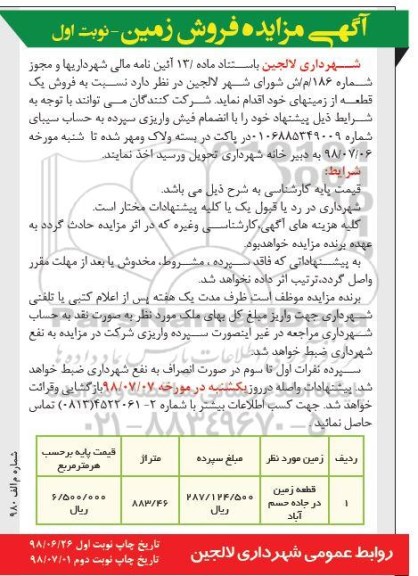 آگهی مزایده فروش زمین - نوبت اول
شـــهرداری لالجین باستناد ماده /۱۳ آئین نامه مالی شهرداریها و مجوز
شـماره ۱۸۶/م/ش شورای شـهر لالجین در نظر دارد نسـبت به فروش یک
قطعـه از زمینهای خود اقدام نماید. شـرکت کنندگان می توانند با توجه به
شـرایط ذیل پیشنهاد خود را با انضمام فیش واریزی سپرده به حساب سیبای
شماره ۰۱۰۶۸۸۵۳۴۹۰۰۹ در پاکت در بسته ولاک ومهر شده تا شنبه مورخه
۹۸/۰۷/۰۶ به دبیر خانه شهرداری تحویل ورسید اخذ نمایند.
شرایط:
قیمت پایه کارشناسی به شرح ذیل می باشد.
شهرداری در رد یا قبول یک یا کلیه پیشنهادات مختار است.
کلیه هزینه های آگهی،کارشناســی وغیره که در اثر مزایده حادث گردد به
عهده برنده مزایده خواهدبود.
به پیشــنهاداتی که فاقد سـپرده ، مشـروط، مخدوش یا بعد از مهلت مقرر
واصل گردد،ترتیب اثر داده نخواهد شد.
برنده مزایده موظف است ظرف مدت یک هفته پس از اعلام کتبی یا تلفنی
شــهرداری جهت واریز مبلغ کل بهای ملک مورد نظر به صورت نقد به حساب
شــهرداری مراجعه در غیر اینصورت سـپرده واریزی شرکت در مزایده به نفع
شهرداری ضبط خواهد شد.
سـپرده نفرات اول تا سوم در صورت انصراف به نفع شهرداری ضبط خواهد
شد. پیشنهادات واصله درروزیکشنبه در مورخه ۹۸/۰۷/۰۷ بازگشایی وقرائت
خواهد شد. جهت کسب اطلاعات بیشتر با شماره ۲-۴۵۲۲۰۶۱ (۰۸۱۳) تماس
حاصل نمائید .
ردیف زمین مورد نظر مبلغ سپرده متراژ قیمت پایه برحسب هرمترمربع
۱ قطعه زمین در جاده حسم آباد ۲۸۷/۱۲۴/۵۰۰ ریال ۸۸۳/۴۶ ۶/۵۰۰/۰۰۰ ریال
شماره م الف ۹۸۰
روابط عمومی شهرداری لالجین
تاریخ چاپ نوبت اول ۹۸/۰۶/۲۶
تاریخ چاپ نوبت دوم ۹۸/۰۷/۰۱
۰۲۱-۸۸۳۴۹۶۷۰-۵